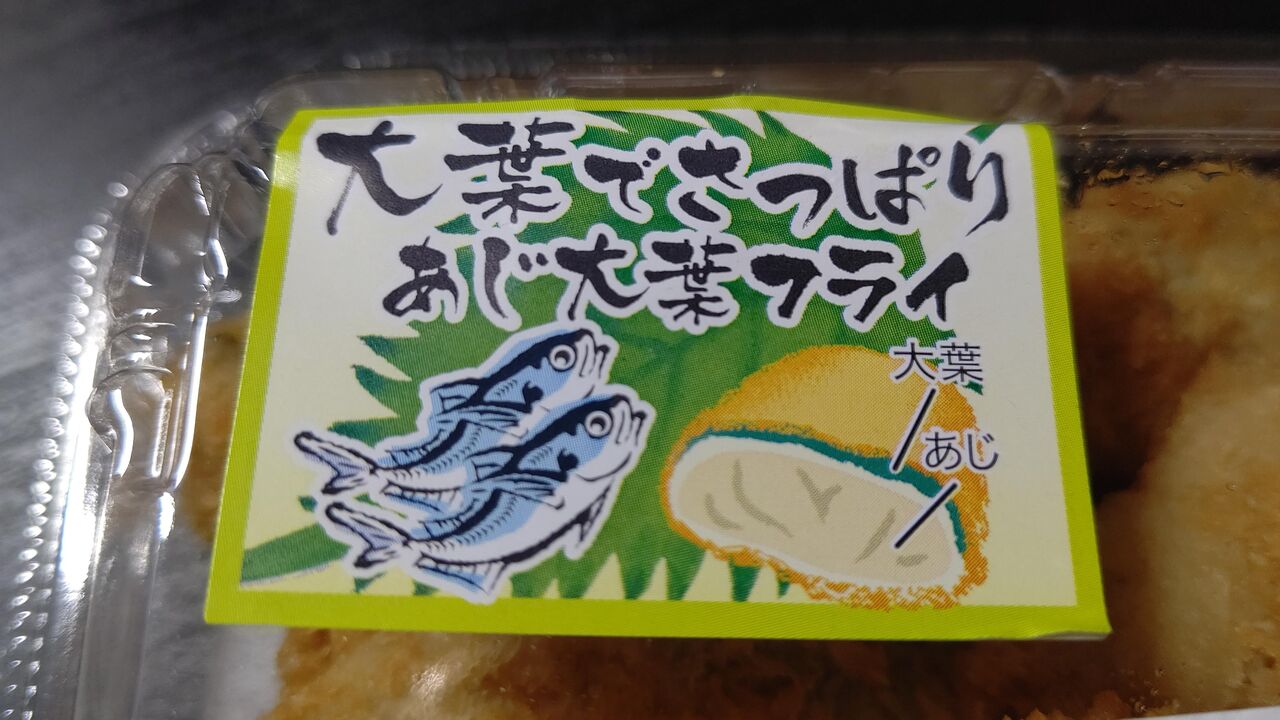 大葉でさっぱり
あじ大葉フライ
大葉
あじ